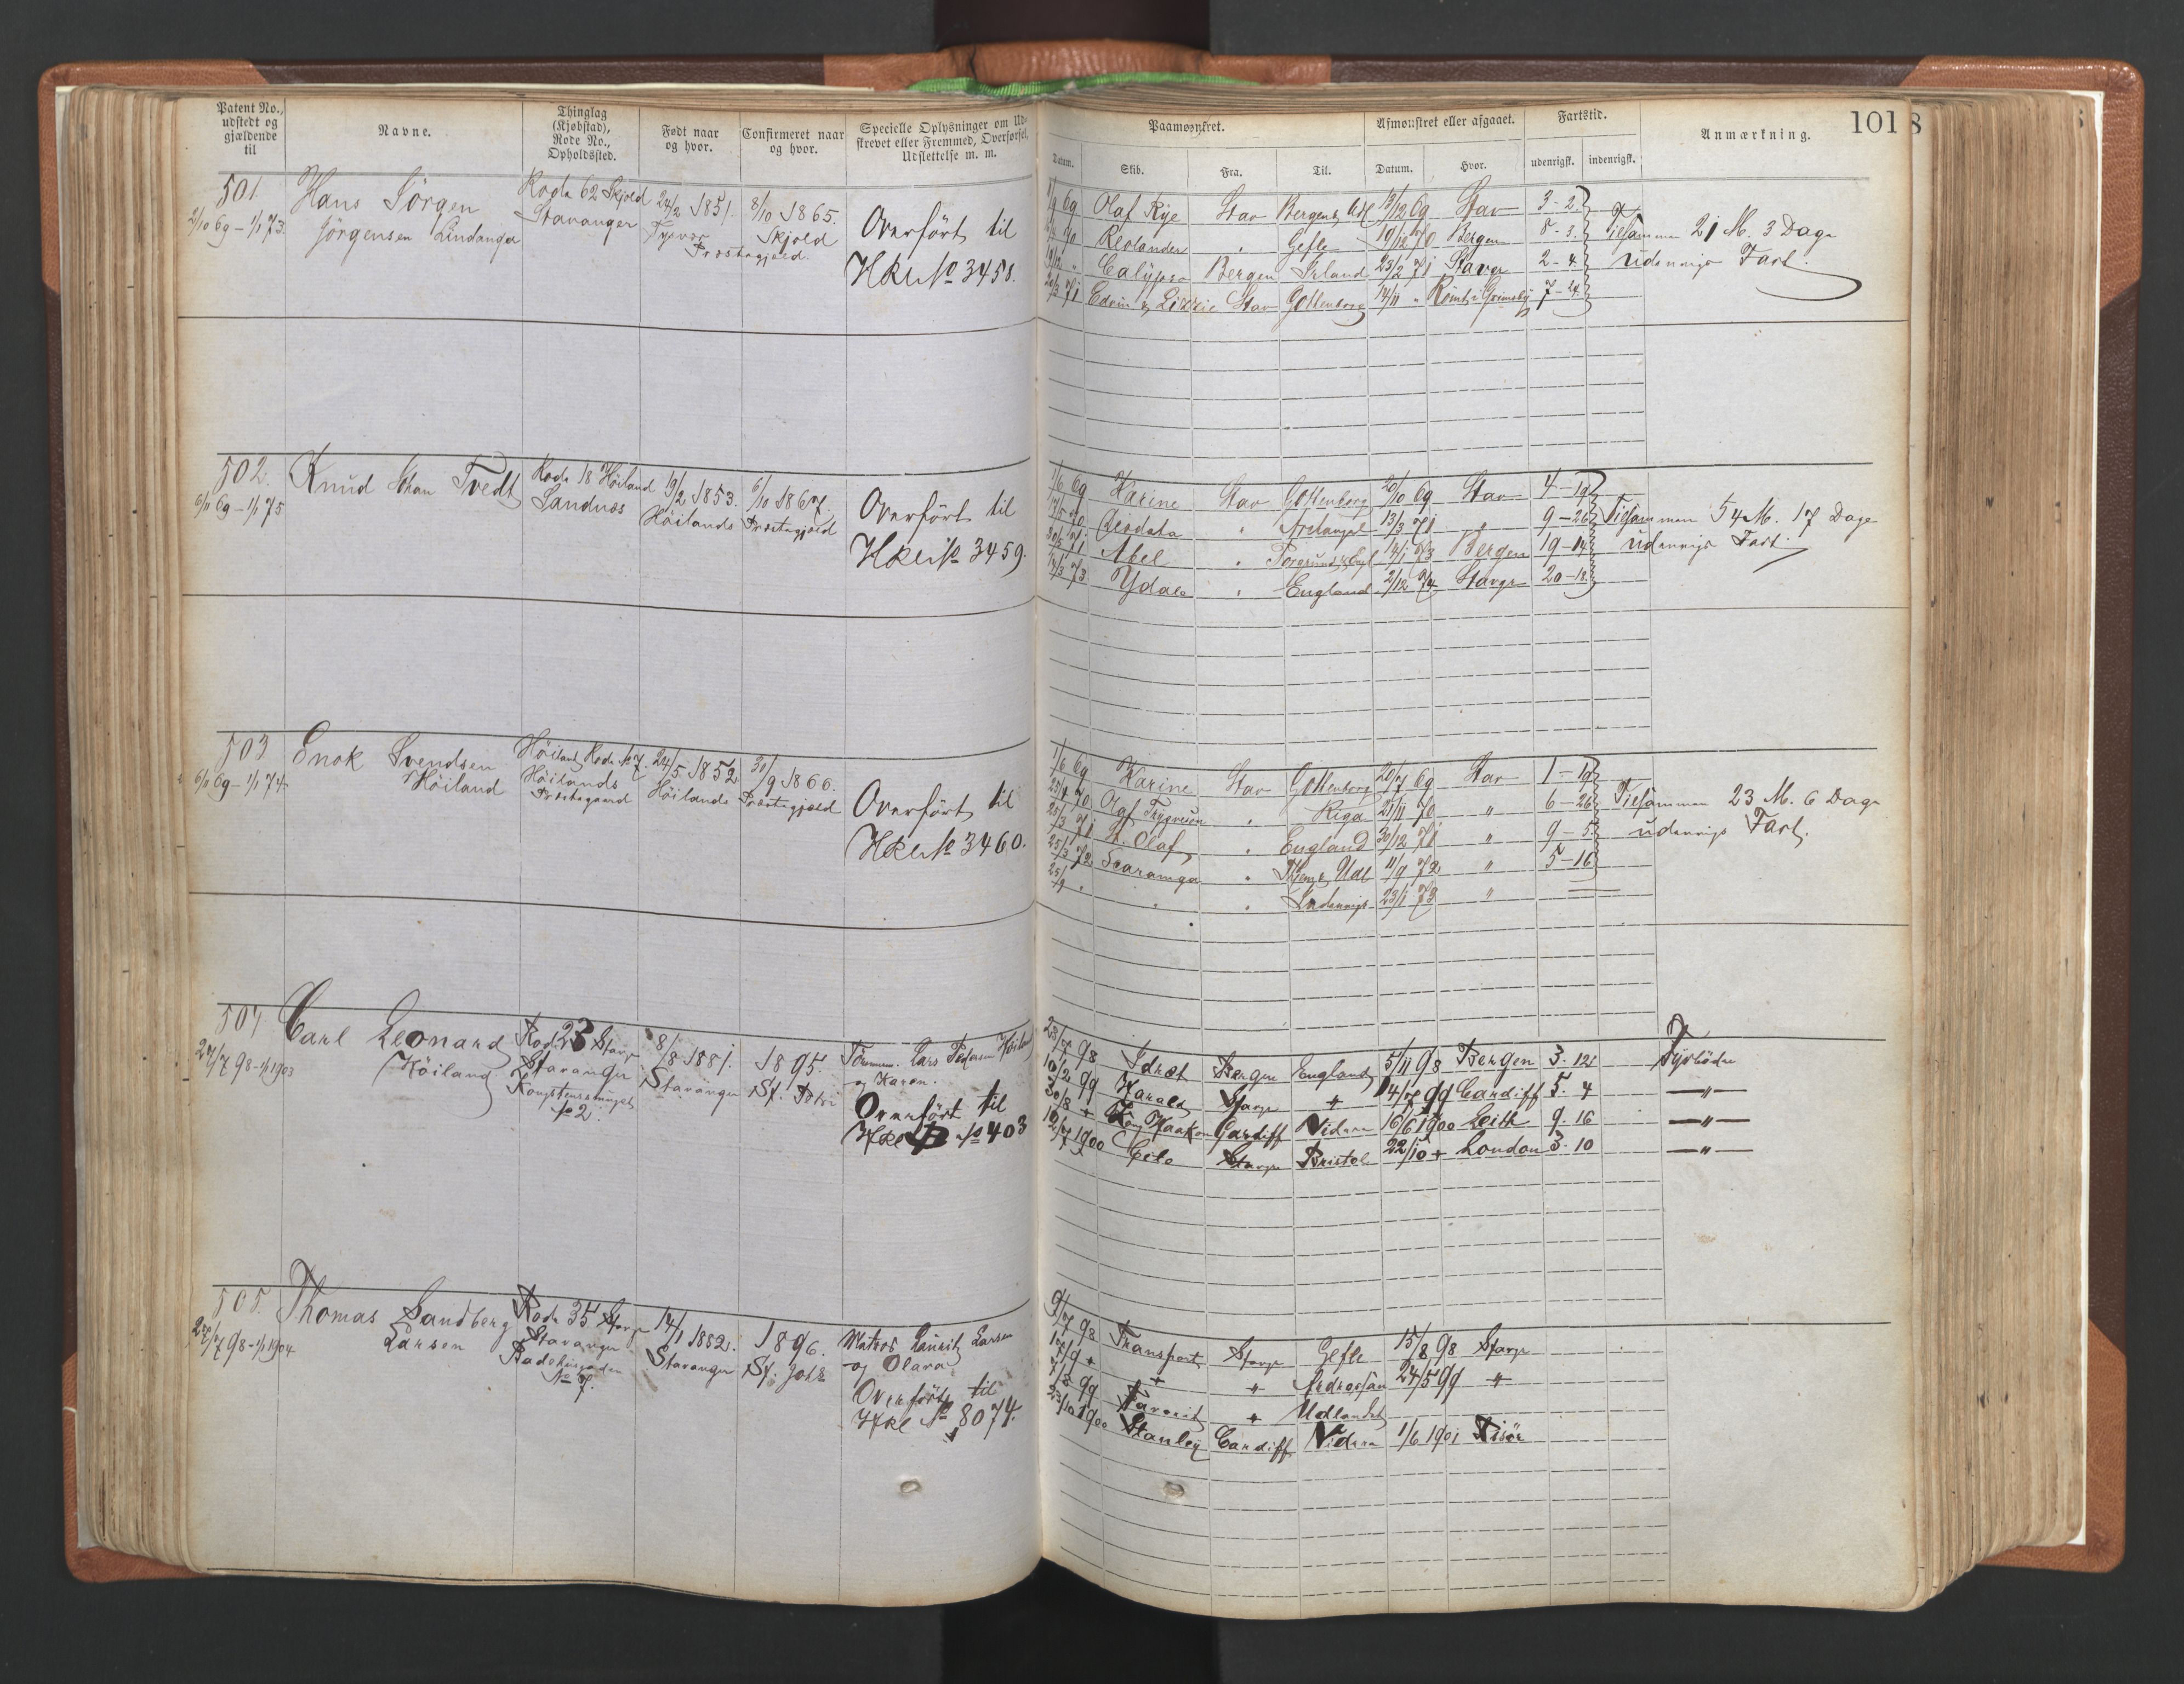 Patent No.,
udstedt og
gjældende
til
Navne.
Thinglag
(Kjøbstad),
Rode No.,
Opholdssted.
Født naar
og hvor.
Confirmeret naar
og hvor.
Specielle Oplysninger om Ud-
skrevet eller Fremmed, Overførsel,
Udslettelse m. m.
Paamønstret.
Datum.
Skib.
Fra.
Til.
Afmønstret eller afgaaet.
Datum.
Hvor.
Fartstid.
udenrigsk.
indenrigsk.
Anmærkning.
101
501
2/10 69 – 1/1 73.
Hans Jörgen
Jörgensen Lindanger
Rode 62 Skjold
Stavanger
24/2 1851.
Tysvær
Præstegjæld.
8/10 1865.
Skjold
Overfört til
Hkl № 3458.
Olaf Rye Stav Bergen & Udl 19/12 69 Stav 3 - 2
Gefle 10/12 70 Bergen 8 - 3
Calypso Bergen Irland 23/2 71 Stavgr 2 - 4
Edvin & Lizzie Stav Gottenborg 14/11 " Römt i Grimsby 7 - 24
Tilsammen 21 M. 3 Dage
udenrigs Fart.
502.
6/11 69 – 1/1 75
Knud Johan Tvedt
Rode 18 Höiland
Sandnæs
19/2 1853.
Höilands
6/10 1867.
Præstegjæld
Overfört til
Hkl № 3459.
1/6 69 Karine Stav Gottenborg 20/10 69 Stav 4 - 19
17/5 70 Deodata " Archangel 13/3 71 " 9 - 26
30/5 71 Abel " Porsgrund & Engl 14/1 73 Bergen 19 - 14
14/3 73 Ydale " England 2/12 74 Stavgr 20 - 18
Tilsammen 54 M. 17 Dage
udenrigs Fart.
503
6/11 69 – 1/1 74
Enok Svendsen
Höiland
Höiland Rode № 7.
Höilands
Præstegaard
24/5 1852
Höilands
30/9 1866.
Præstegjæld
Overfört til
Hkl № 3460.
1/6 69 Karine Stav Gottenborg 20/7 69 Stav 1 - 19
25/4 70 Olaf Trygveson " Riga 21/11 70 " 6 - 26
25/3 71 St. Olaf " England 30/12 71 " 9 - 5
25/3 72 Scaramga " Udl 11/9 72 " 5 - 16
25/9 " " " Indenrigs 23/1 73 "
Tilsammen 23 M. 6 Dage
udenrigs Fart.
504
27/7 98 - 1/1 1903
Carl Leonard
Höiland
Rode 23 Stavgr
Stavanger
Kongstensmyrgt
№ 2.
8/8 1881.
Stavanger
1895.
St. Petri
Tömmerm. Lars Pedersen Höiland
og Karen.
Overfört til
Hkl B № 403
28/7 98 Idræt Bergen England 5/11 98 Bergen 3. 12
10/2 99 Harald Stavgr " 14/7 99 Cardiff 5. 4
30/8 " Kong Haakon Cardiff Videre 16/6 1900 Leith 9. 16
12/7 1900 Ceto Stavgr Bristol 22/10 " London 3. 10
Fyrböder
— " —
— " —
— " —
505.
28/7 98 - 1/1 1904
Thomas Sandberg
Larsen
Rode 35 Stavgr
Stavanger
Badehusgaden
№ 7.
14/1 1882.
Stavanger
1896.
St. Johs
Matros Lauritz Larsen
og Olava
Overfört til
Hkl № 8074.
9/7 98 Transport Stavgr Gefle 15/8 98 Stavgr
17/9 " " " Ardrossan 24/5 99 "
7/8 99 Favorit " Udlandet
23/10 1900 Stanley Cardiff Videre 1/6 1901 Risör